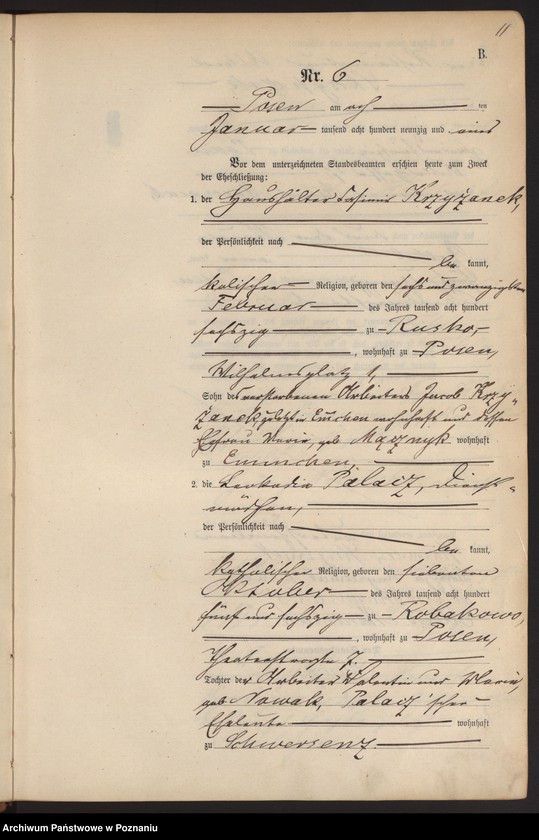 11
B.
Nr. 6
Posen am acht ten
Januar tausend acht hundert neunzig und eins
Vor dem unterzeichneten Standesbeamten erschien heute zum Zweck
der Eheschließung:
1. der Haushälter Casimir Krzyżanek,
der Persönlichkeit nach
be kannt,
katolischer Religion, geboren den sechs und zwanzigsten
Februar des Jahres tausend acht hundert
sechszig zu Rusko,
, wohnhaft zu Posen,
Wilhelmsplatz 1,
Sohn des verstorbenen Arbeiters Jacob Krzy-
żanek, zuletzt in wohnhaft und dessen
Ehefrau Marie, geb. Mącznyk wohnhaft
zu
2. die Leokadia Palacz, Dienst-
mädchen,
der Persönlichkeit nach
be kannt,
katholischer Religion, geboren den siebenten
Oktober des Jahres tausend acht hundert
fünf und sechszig zu Robakowo,
, wohnhaft zu Posen,
Theaterstraße 7.
Tochter der Arbeiter Valentin und Marie,
geb. Nowak, Palacz'schen
Eheleute wohnhaft
zu Schwersenz
Archiwum Państwowe w Poznaniu